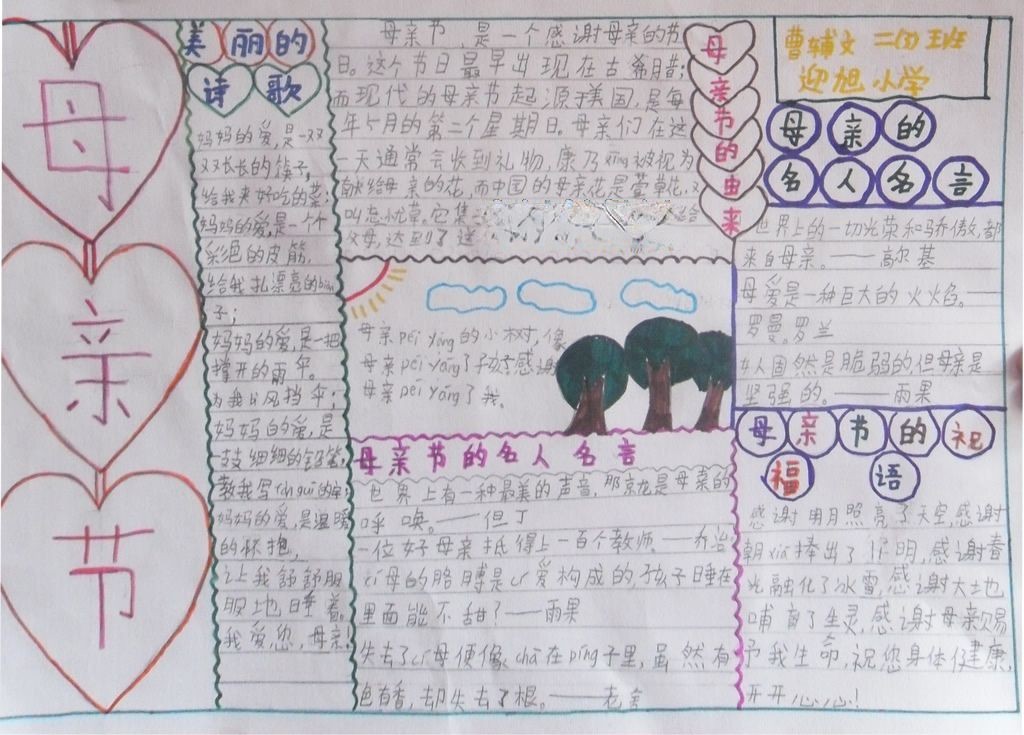 母
亲
节
美丽的
诗歌
妈妈的爱,是一双
双长长的筷子,
给我夹好吃的菜;
妈妈的爱,是一个
彩色的皮筋,
给我扎漂亮的biàn
子;
妈妈的爱,是一把
撑开的雨伞,
为我分风挡伞;
妈妈的爱,是
一支细细的铅笔,
教我写
妈妈的爱,是温暖
的怀抱,
让我舒舒服
服地睡着。
我爱您,母亲!
母亲节,是一个感谢母亲的节
日。这个节日最早出现在古希腊;
而现代的母亲节起源于美国,是每
年5月的第二个星期日。母亲们在这
一天通常会收到礼物,康乃xīng被视为
献给母亲的花,而中国的母亲花是萱草花,又
叫忘忧草。它集
给
父母,达到了送
母亲节的由来
母亲péi yǎng的小树,像
母亲péi yǎng了孩子感谢
母亲péi yǎng了我。
母亲节的名人名言
世界上有一种最美的声音,那就是母亲的
呼唤。——但丁
一位好母亲抵得上一百个教师。——乔治
cí母的胳膊是cí爱构成的,孩子睡在
里面能不甜?——雨果
失去了cí母便像chā在píng子里,虽然有
色有香,却失去了根。——老舍
曹辅文 二(7)班
迎旭小学
母亲的
名人名言
世界上的一切光荣和骄傲,都
来自母亲。——高尔基
母爱是一种巨大的火焰。——
罗曼。罗兰
女人固然是脆弱的,但母亲是
坚强的。——雨果
母亲节的祝
福语
感谢明月照亮了天空,感谢
朝xiá捧出了光明,感谢春
光融化了冰雪,感谢大地
哺育了生灵,感谢母亲赐
予我生命,祝您身体健康,
开开心心!